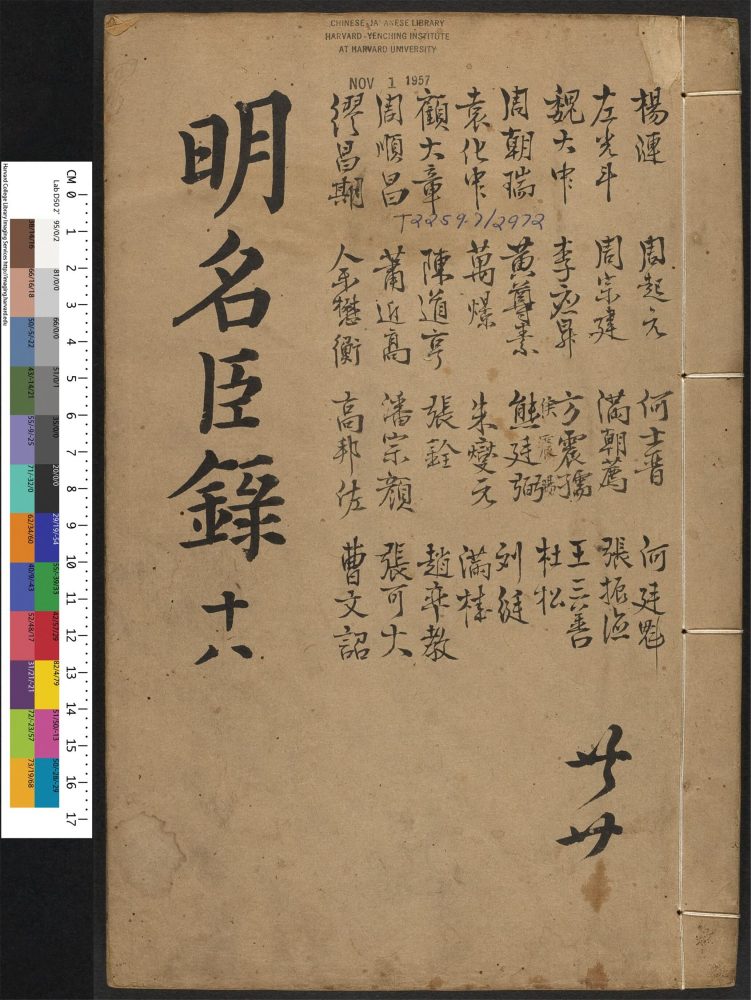 CHINESE-JAPANESE LIBRARY
HARVARD-YENCHING INSTITUTE
AT HARVARD UNIVERSITY
NOV 1 1957
楊漣 周起元 何士晉 何廷魁
左光斗 周宗建 滿朝薦 張振德
魏大中 李應昇 方震孺 王三善
侯震暘
周朝瑞 黃尊素 熊廷弼 杜松
袁化中 萬燝 朱燮元 刘綎
顧大章 陳道亨 張銓 滿桂
周順昌 蕭近高 潘宗顏 趙率教
繆昌期 余懋衡 高邦佐 張可大
曹文詔
T2259.7/2972
明名臣錄 十八
廿
CM 0 1 2 3 4 5 6 7 8 9 10 11 12 13 14 15 16 17
Harvard College Library Imaging Services